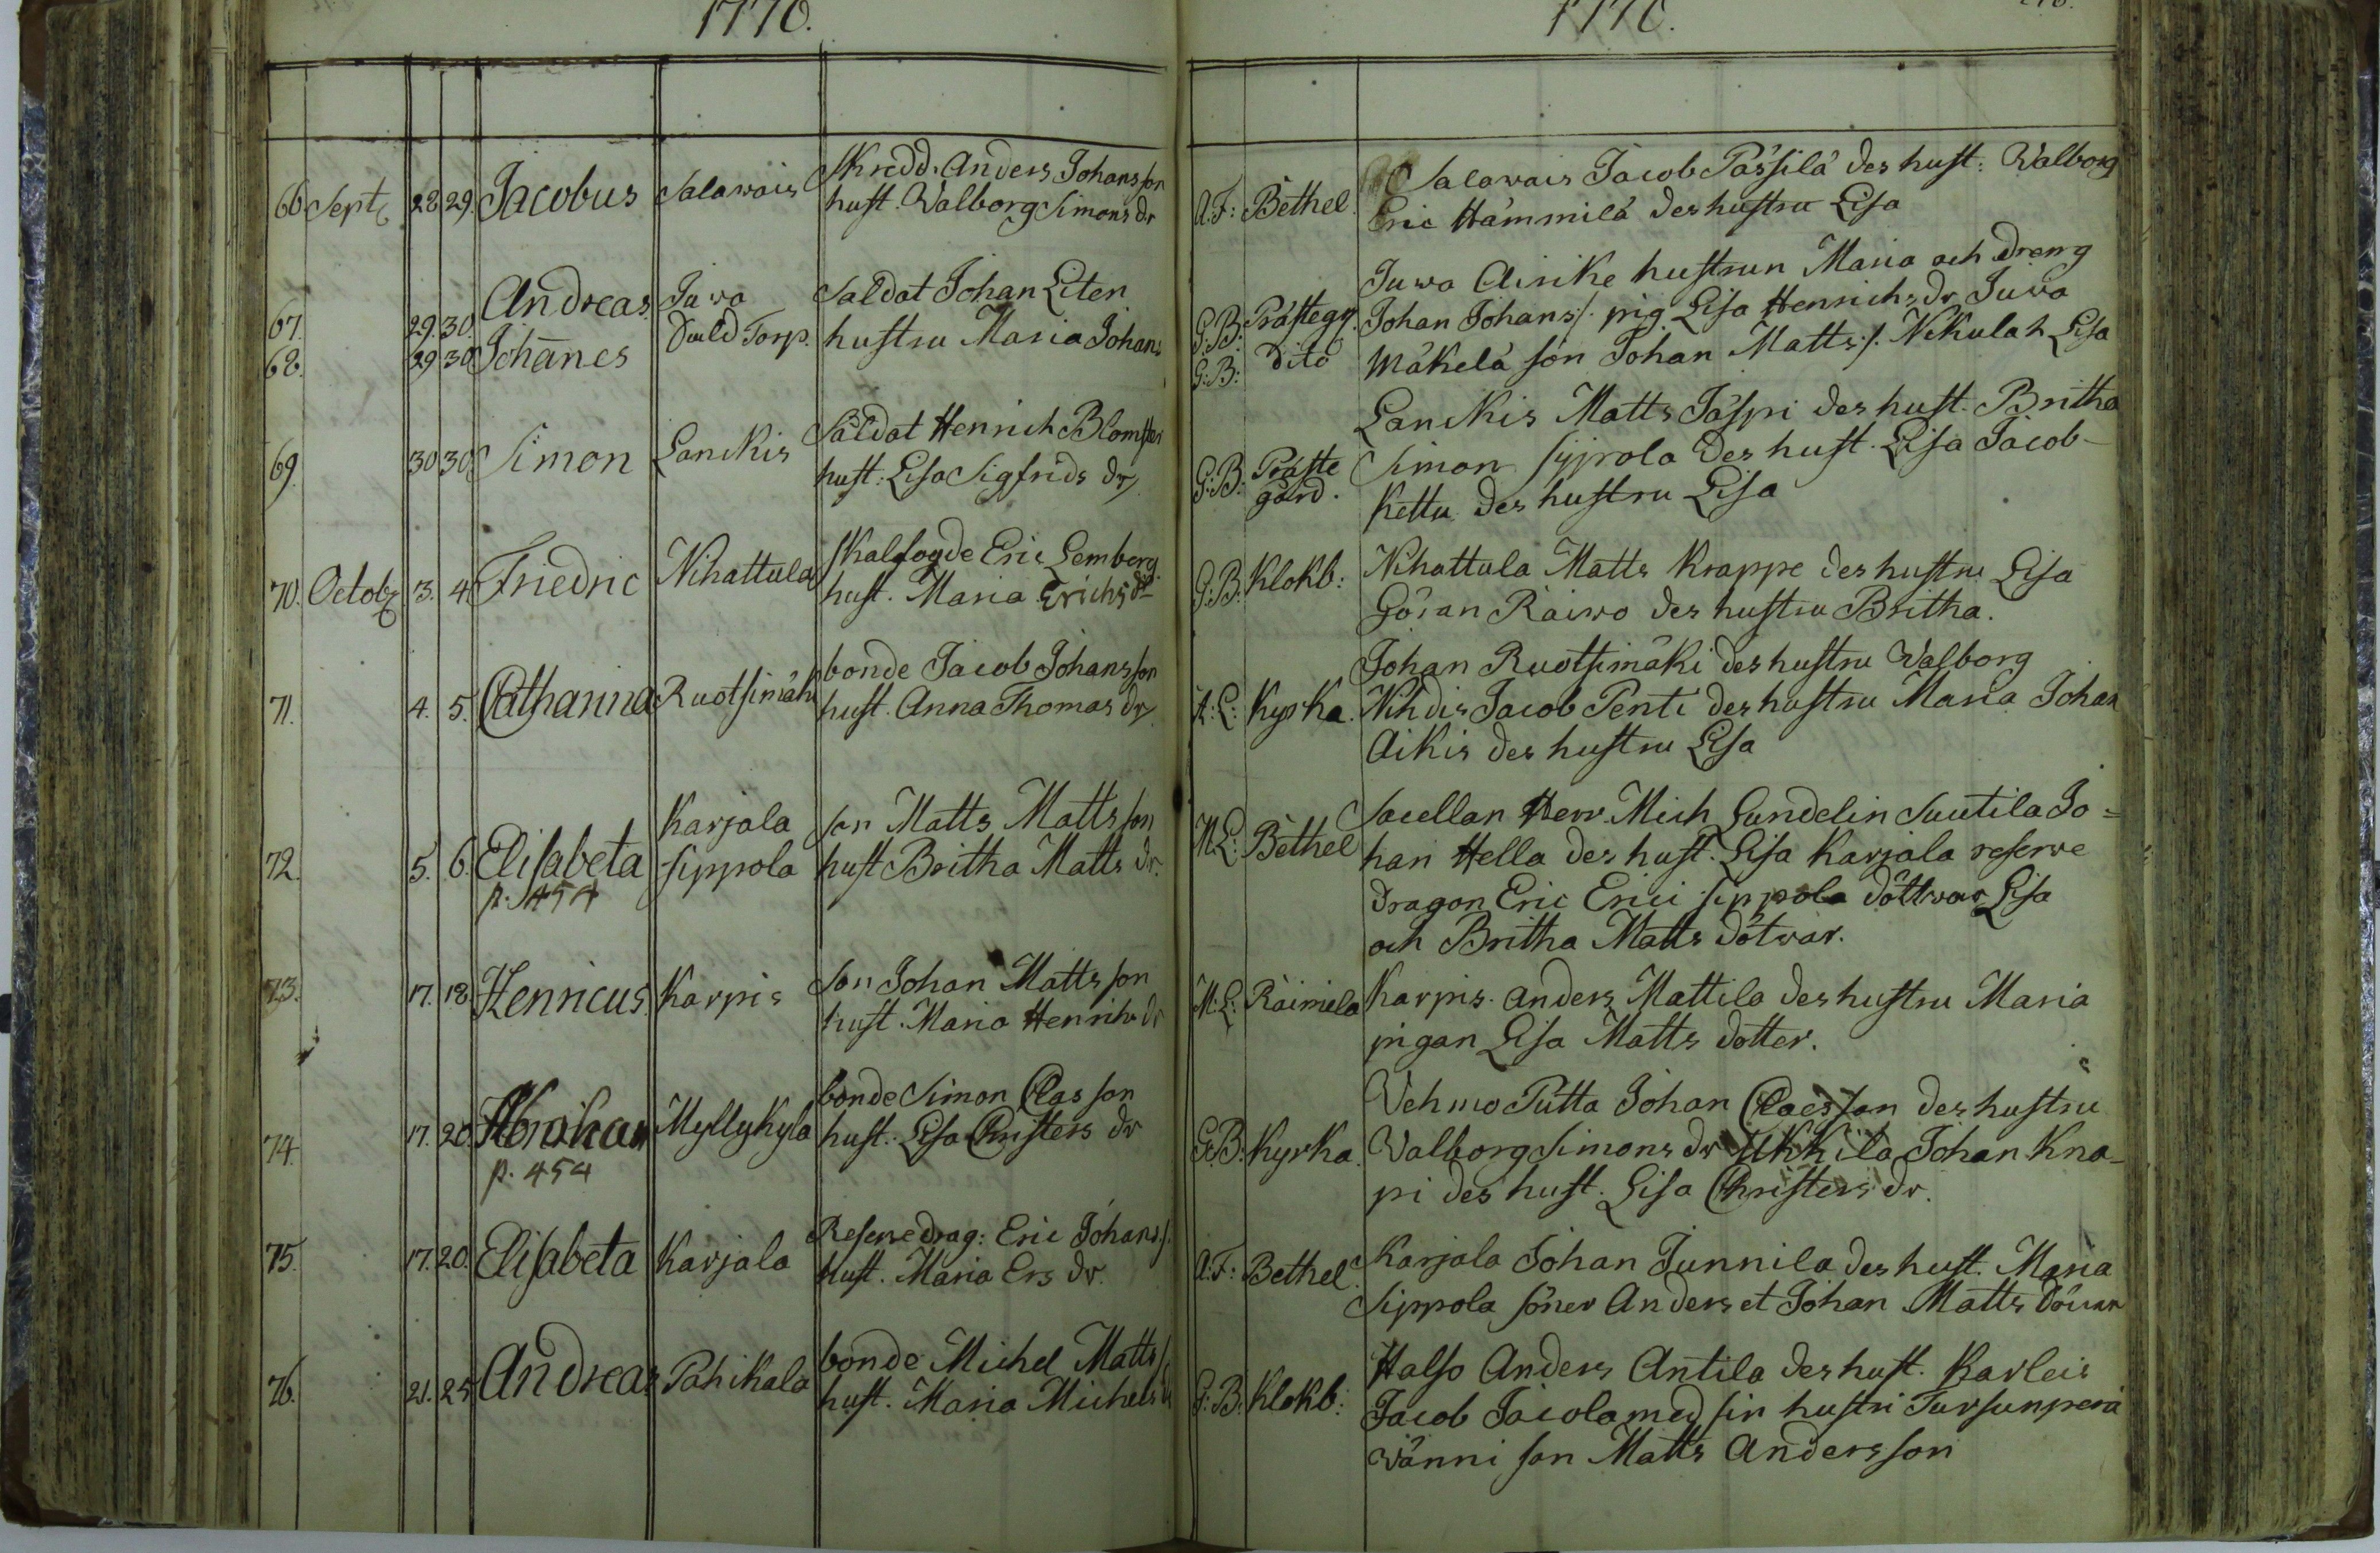 1770.
1770.
66 Sept 28 29. Jacobus Salawais Skredd: Anders Johansson
hust. Walborg Simons dr
A.F: Bethel. Salawais Jacob Pässilä des hust: Walborg
Eric Hämmilä des hustru Lisa
67. 29. 30. Andreas Juva Saldat Johan Liten
68. 29 30 Johanes Torp. hustru Maria Johans
G:B: Prästeg. Juwa Airike hustrun Maria och dreng
Johan Johans/. pig Lisa Henrichs dr Juwa
G:B: dito Mäkelä son Johan Matts:/. Nikula h Lisa
69. 30 30 Simon Lanckis Saldat Henrich Blomster
hust: Lisa Sigfrids dr
G:B: Präste
gård.
Lanckis Matts Jäspri des hust. Britha
Simon Sypola des hust. Lisa Jacob
Kettu des hustru Lisa
70. Octob 3. 4 Friedric Nihattula Skalfogde Eric Lemberg
hust. Maria Erichs dr
G:B. Klokb: Nihattula Matts Krappe des hustru Lisa
Göran Räiwo des hustru Britha.
71. 4. 5. Catharina Ruotsimäki bonde Jacob Johansson
hust. Anna Thomas dr
A:L: Kyrka. Johan Ruotsimäki des hustru Walborg
Nihdis Jacob Penti des hustru Maria Johan
Aikis des hustru Lisa
72. 5. 6. Elisabeta Karjala Son Matts Mattsson
Sippola hust Britha Matts dr.
p. 454
M.L: Bethel Sacellan Herr Mich Lundelin Suutila Jo=
han Hella des hust. Lisa Karjala reserve
Dragon Eric Erici Sippola döttrar Lisa
och Britha Matts dötrar.
73. 17. 18. Henricus. Karpis Son Johan Mattsson
hust. Maria Henrichs dr
M:L: Räimela Karpis. Anders Mattila des hustru Maria
pigan Lisa Matts dotter.
74. 17. 20. Abraham Myllykylä bonde Simon Classon
hust. Lisa Christers dr
p. 454
G:B: Kyrka. Vehmo Putta Johan Claesson des hustru
Valborg Simons dr Ukkila Johan Kna-
pi des hust. Lisa Christers dr.
75. 17. 20. Elisabeta Karjala Reserve drag: Eric Johans:/.
hust. Maria Ers dr.
A.F: Bethel. Karjala Johan Junnila des hust. Maria
Sippola söner Anders et Johan Matts
76. 21. 25 Andreas Pahikala bonde Michel Matts/
hust. Maria Michels
G:B. Klokb: Halso Anders Antila des hust. Karleis
Jacob Jacola med sin hustru Tursunperä
Wänni son Matts Andersson